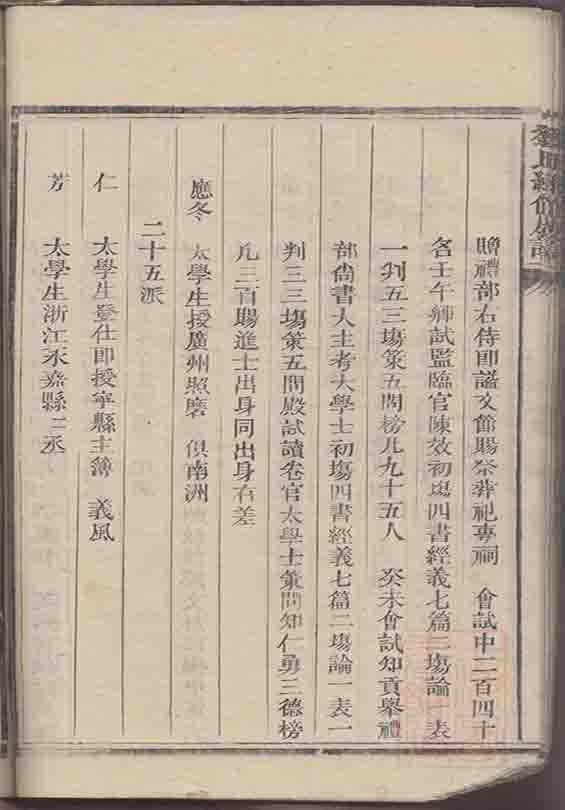 贈禮部右侍郎諡文節賜祭葬祀專祠　會試中二百四十
名壬午鄉試監臨官陳效初塲四書經義七篇二塲論一表
一判五三塲策五問榜凡九十五人　癸未會試知貢舉禮
部尙書人主考大學士初塲四書經義七篇二塲論一表一
判三三塲策五問殿試讀卷官太學士策問知仁勇三德榜
凡三百賜進士出身同出身有差
應冬　太學生授廣州照磨　俱南洲
二十五派
仁　太學生登仕郎授寧縣主簿　義風
芳　太學生浙江永嘉縣二丞